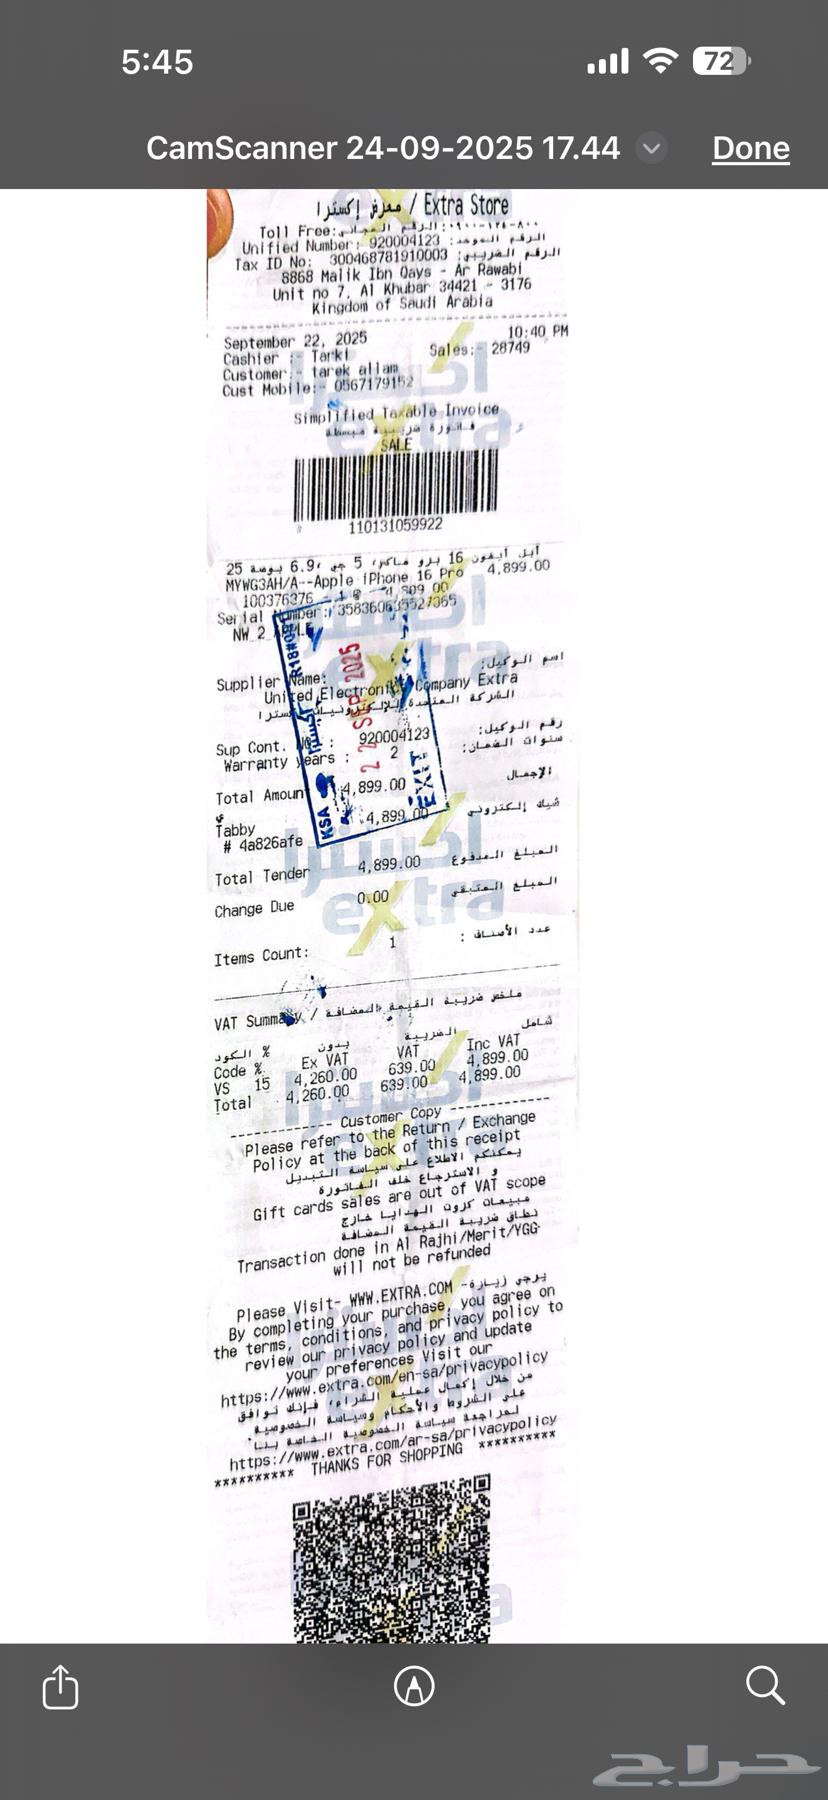 5:45
72
CamScanner 24-09-2025 17.44
Done
معرض إكسترا / Extra Store
Toll Free: الرقم المجاني:
Unified Number: 920004123 الرقم الموحد:
Tax ID No: 300468781910003 الرقم الضريبي:
8868 Malik Ibn Qays - Ar Rawabi
Unit no 7, Al Khubar 34421 - 3176
Kingdom of Saudi Arabia
September 22, 2025 10:40 PM
Cashier :- Tarki Sales:- 28749
Customer:- tarek allam
Cust Mobile:- 0567179152
Simplified Taxable Invoice
فاتورة ضريبية مبسطة
SALE
110131059922
أبل أيفون 16 برو ماكس، 5 جي ،6.9 بوصة 25
MYWG3AH/A--Apple iPhone 16 Pro 4,899.00
100376376
Serial Number: 358360635527365
NW 2
اسم الوكيل:
Supplier Name:
United Electronics Company Extra
الشركة المتحدة للإلكترونيات إكسترا
رقم الوكيل:
Sup Cont. No : 920004123
سنوات الضمان:
Warranty years : 2
الإجمال
Total Amount 4,899.00
ي
شيك إلكتروني
Tabby 4,899.00
# 4a826afe
المبلغ المدفوع
Total Tender 4,899.00
المبلغ المتبقي
Change Due 0.00
عدد الأصناف :
Items Count: 1
KSA
22 SEP 2025
EXIT
VAT Summary / ملخص ضريبة القيمة المضافة
الكود % بدون الضريبة شامل
Code % Ex VAT VAT Inc VAT
VS 15 4,260.00 639.00 4,899.00
Total 4,260.00 639.00 4,899.00
Customer Copy
Please refer to the Return / Exchange
Policy at the back of this receipt
يمكنكم الاطلاع على سياسة التبديل
و الاسترجاع خلف الفاتورة
Gift cards sales are out of VAT scope
مبيعات كروت الهدايا خارج
نطاق ضريبة القيمة المضافة
Transaction done in Al Rajhi/Merit/YGG
will not be refunded
يرجى زيارة-
Please Visit- WWW.EXTRA.COM
By completing your purchase, you agree on
the terms, conditions, and privacy policy to
review our privacy policy and update
your preferences Visit our
https://www.extra.com/en-sa/privacypolicy
من خلال إكمال عملية الشراء، فإنك توافق
على الشروط والأحكام وسياسة الخصوصية.
لمراجعة سياسة الخصوصية الخاصة بنا
https://www.extra.com/ar-sa/privacypolicy
********** THANKS FOR SHOPPING **********
حراج